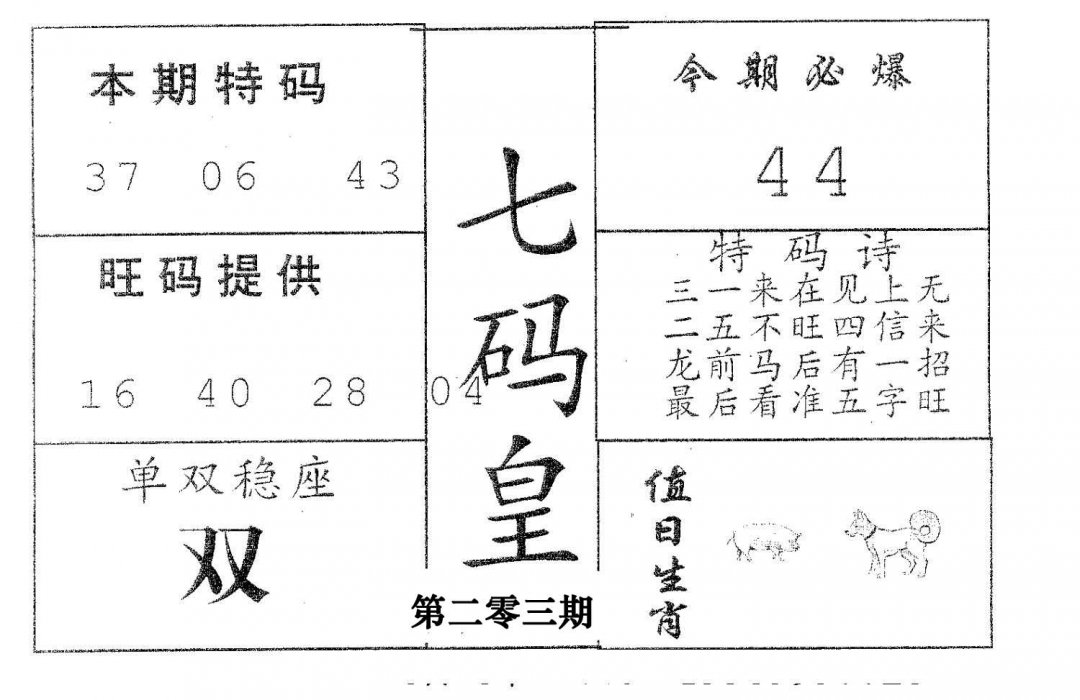 本期特码
37 06 43
旺码提供
16 40 28 04
单双稳座
双
七码皇
第二零三期
今期必爆
44
特码诗
三一来在见上无
二五不旺四信来
龙前马后有一招
最后看准五字旺
值日生肖